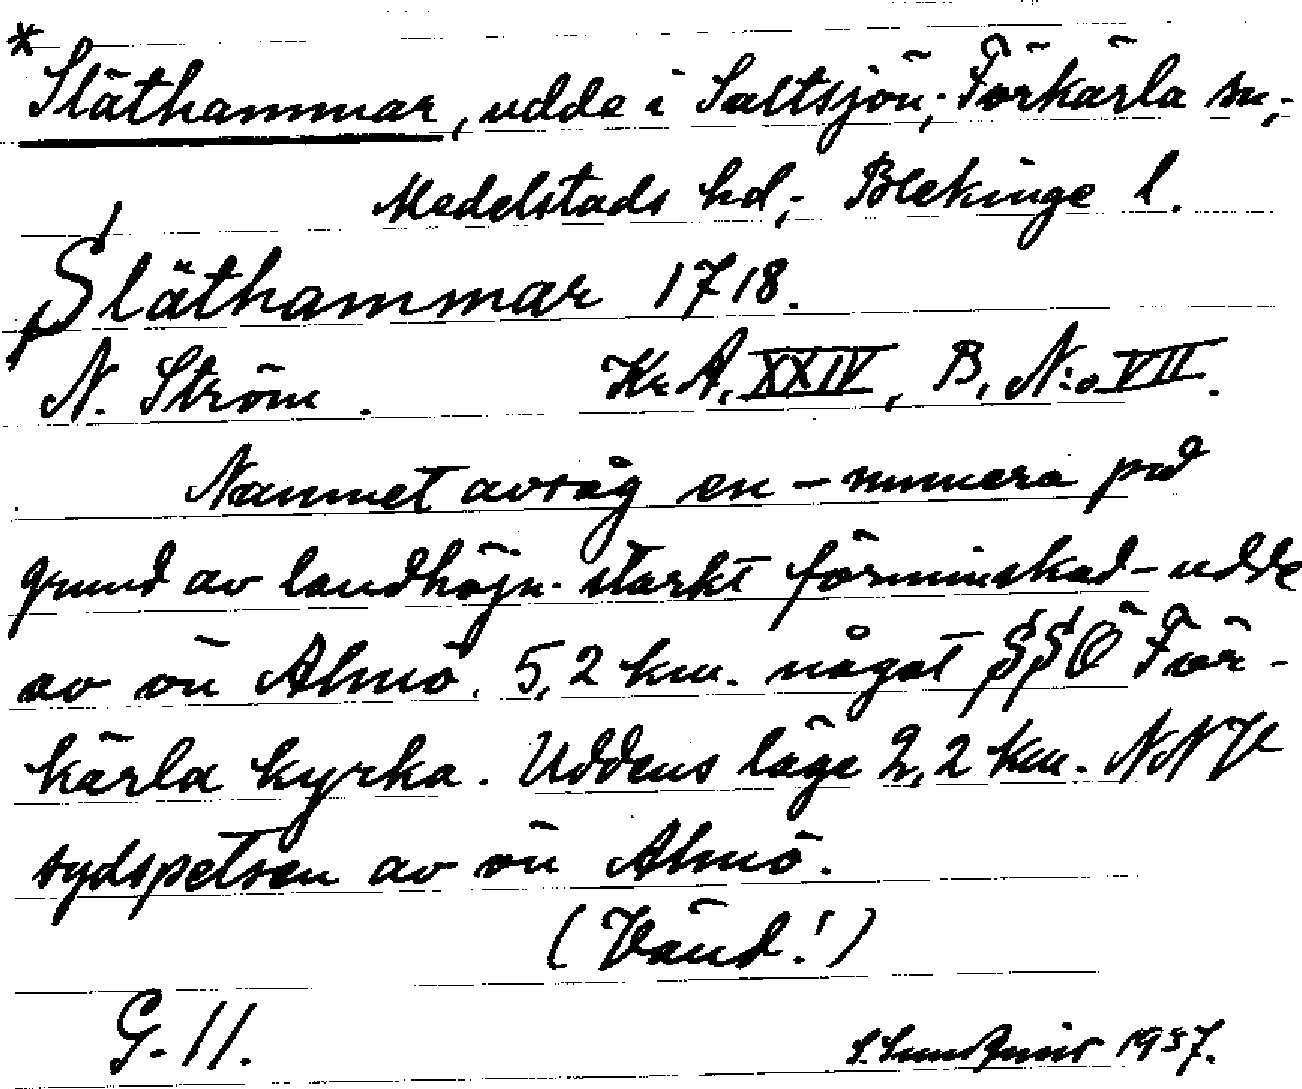 *Släthammar, udde i Saltsjön; Förkärla sn,-
Medelstads hd,- Blekinge l.
Släthammar 1718.
N. Ström. Kr. A. XXIV, B, N:o VII.
Namnet avsåg en - numera på
grund av landhöjn. starkt förminskad - udde
av ön Almö. 5,2 km. något SSÖ För-
kärla kyrka. Uddens läge 2,2 km. NNV
sydspetsen av ön Almö.
(Vänd!)
G. 11. 1937.